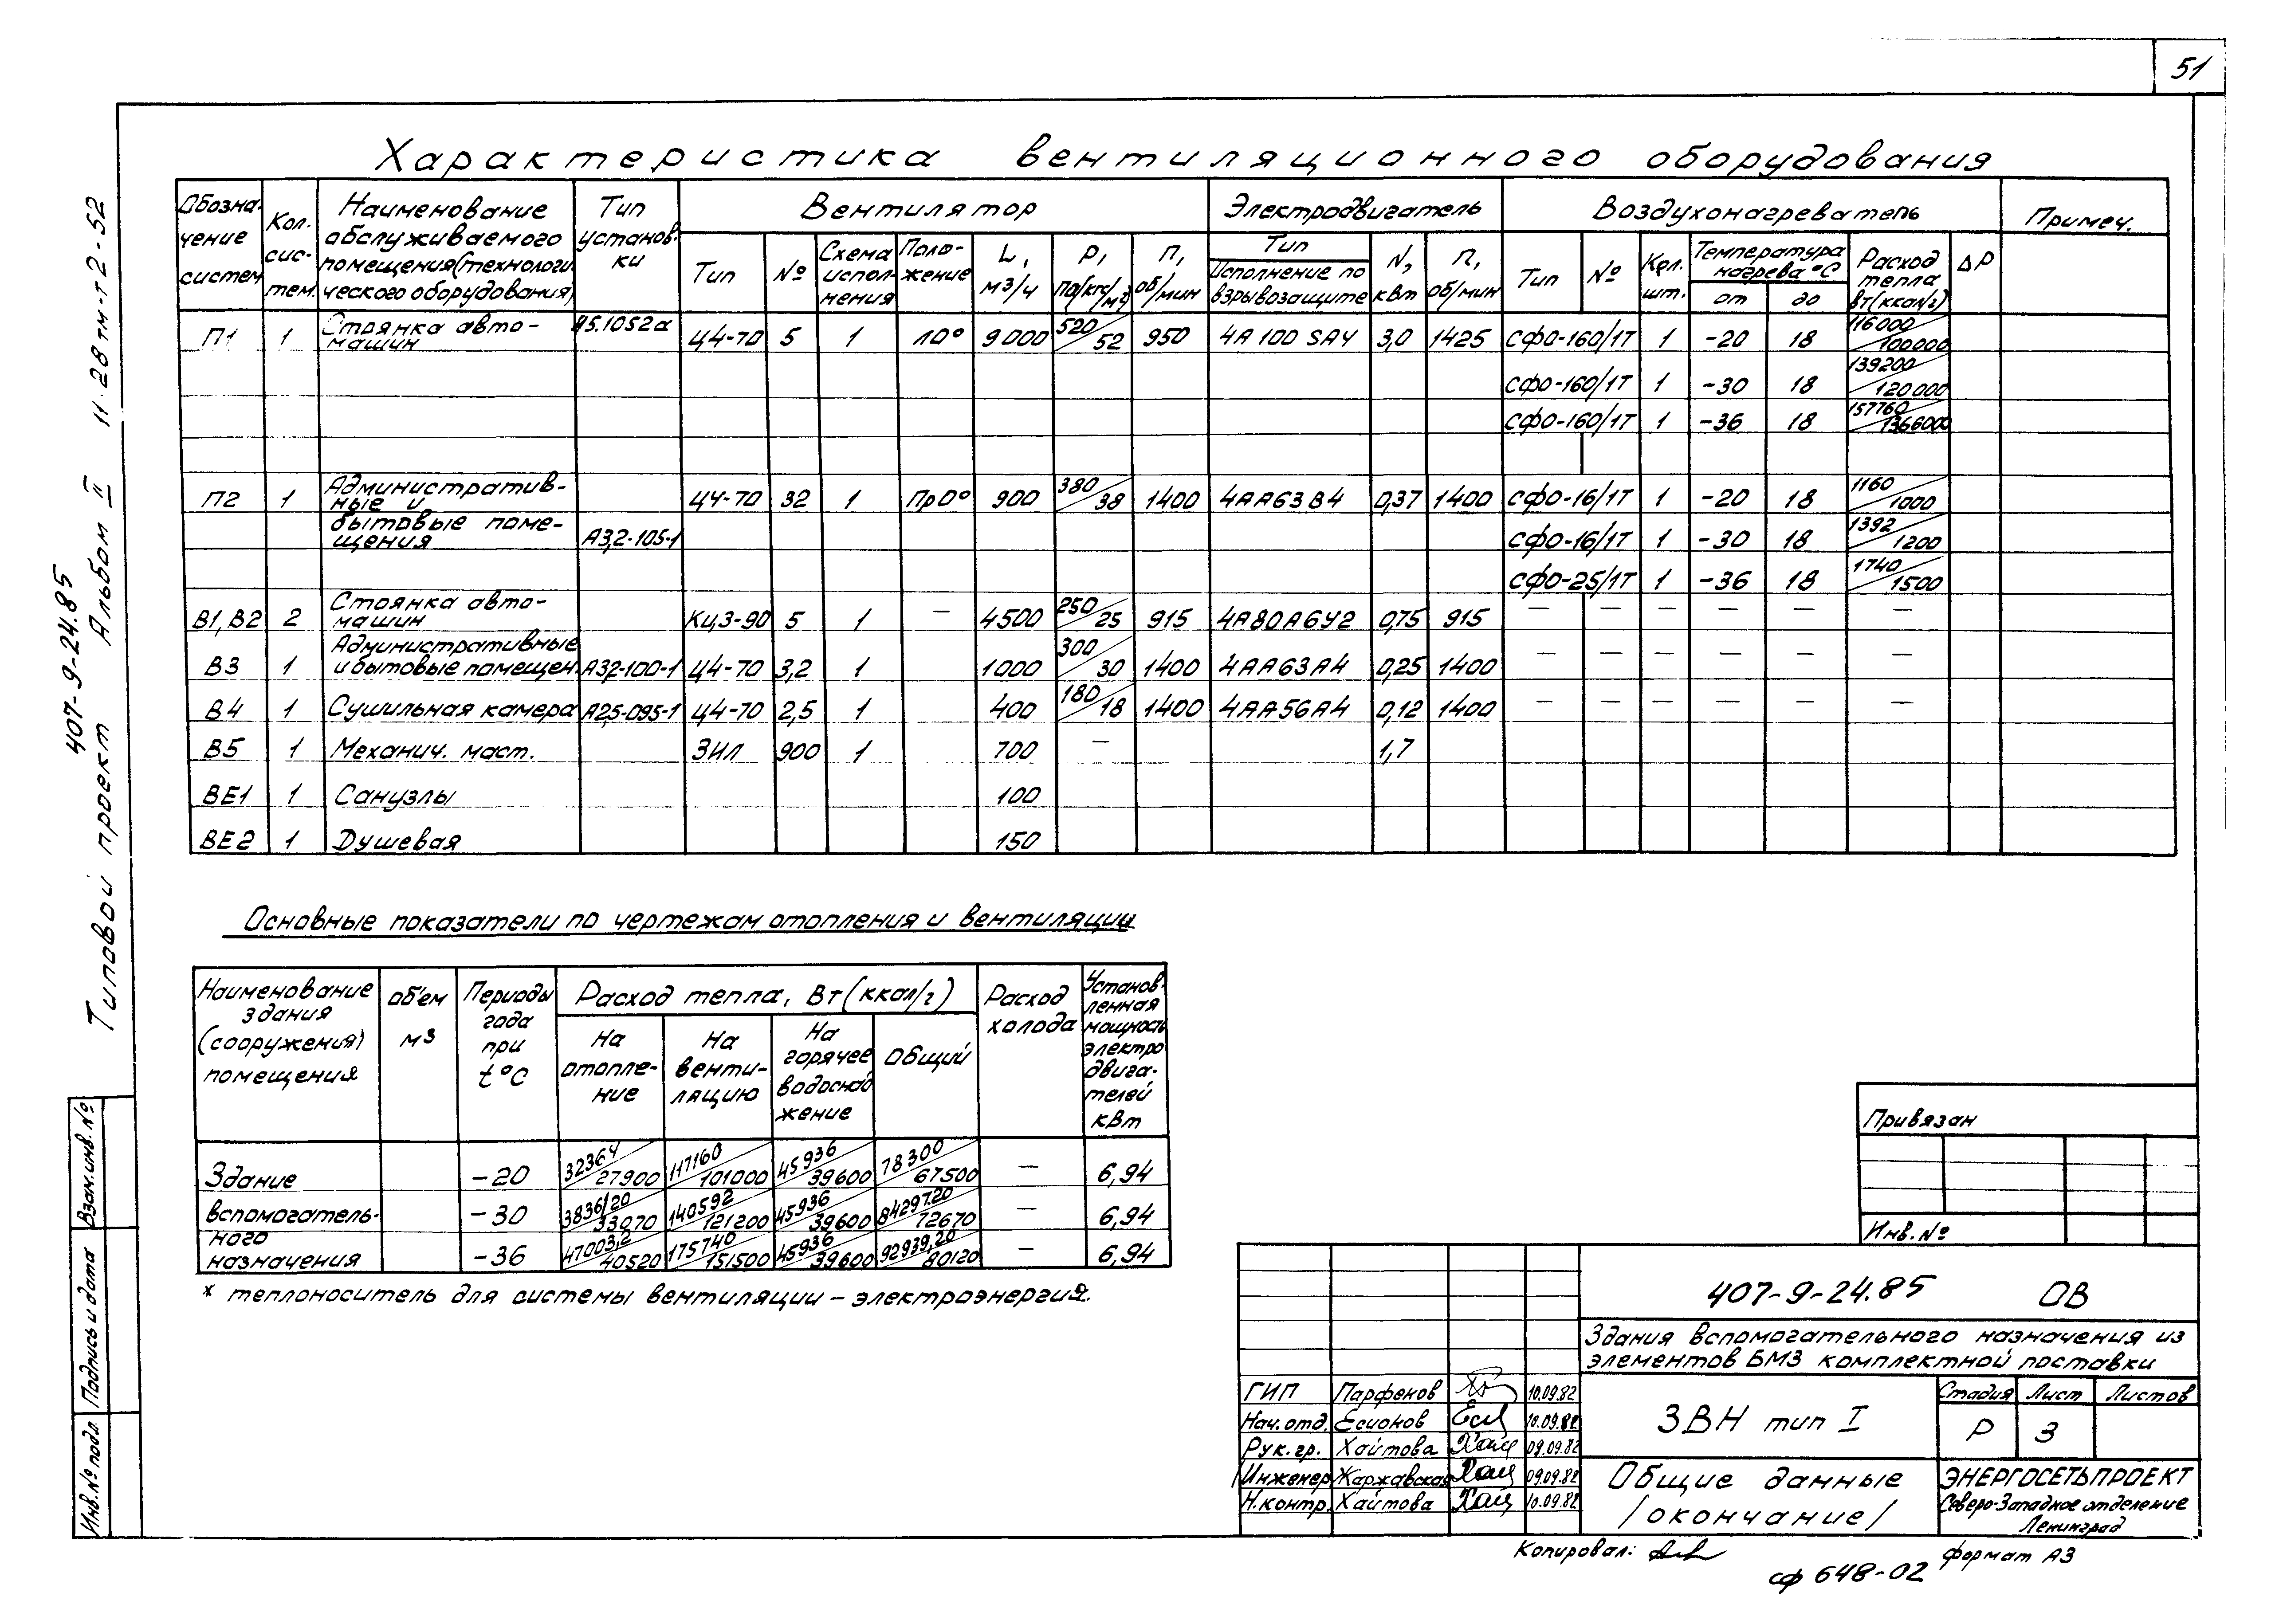 51
Характеристика вентиляционного оборудования
Обозначение систем
Кол. систем.
Наименование обслуживаемого помещения (технологического оборудования)
Тип установки
Вентилятор
Электродвигатель
Воздухонагреватель
Примеч.
Тип
№
Схема исполнения
Положение
L, м³/ч
Р, Па/кгс/м²
П, об/мин
Тип
Исполнение по взрывозащите
N, квт
П, об/мин
Тип
№
Кол. шт.
Температура нагрева °С
от
до
Расход тепла вт(ккал/г)
ΔР
П1 1 Стоянка автомашин А5.1052а Ц4-70 5 1 Л0° 9000 520/52 950 4А 100 SАУ 3,0 1425 СФО-160/1Т 1 -20 18 116000/100000
СФО-160/1Т 1 -30 18 139200/120000
СФО-160/1Т 1 -36 18 157760/1366000
П2 1 Административные и Ц4-70 32 1 Пр0° 900 380/38 1400 4АА63В4 0,37 1400 СФО-16/1Т 1 -20 18 1160/1000
бытовые помещения А3,2-105-1 СФО-16/1Т 1 -30 18 1392/1200
СФО-25/1Т 1 -36 18 1740/1500
В1,В2 2 Стоянка автомашин КЦ3-90 5 1 — 4500 250/25 915 4А80А6У2 0,75 915 — — — — — —
В3 1 Административные и бытовые помещен. А32-100-1 Ц4-70 3,2 1 1000 300/30 1400 4АА63А4 0,25 1400 — — — — — —
В4 1 Сушильная камера А2,5-095-1 Ц4-70 2,5 1 400 180/18 1400 4АА56А4 0,12 1400 — — — — — —
В5 1 Механич. маст. ЗИЛ 900 1 700 — 1,7
ВЕ1 1 Санузлы 100
ВЕ2 1 Душевая 150
Основные показатели по чертежам отопления и вентиляции
Наименование здания (сооружения) помещения
Объем м³
Периоды года при t°С
Расход тепла, Вт (ккал/г)
На отопление
На вентиляцию
На горячее водоснабжение
Общий
Расход холода
Установленная мощность электродвигателей кВт
Здание -20 32364/27900 117160/101000 45936/39600 78300/67500 — 6,94
вспомогатель- -30 38361/20/33070 140592/121200 45936/39600 84297.20/72670 — 6,94
ного назначения -36 47003,2/40520 175740/151500 45936/39600 92939,20/80120 — 6,94
* теплоноситель для системы вентиляции – электроэнергия.
Типовой проект 407-9-24.85 Альбом II 11.28тм-т2-52
Взам.инв.№
Подпись и дата
Инв.№ подл.
Привязан
Инв.№
407-9-24.85 ОВ
Здания вспомогательного назначения из
элементов БМЗ комплектной поставки
ГИП Парфенов 10.09.82
Нач.отд. Есионов 10.09.82
Рук.гр. Хаймова 09.09.82
Инженер Жаржавская 09.09.82
Н.контр. Хаймова 10.09.82
ЗВН тип I
Стадия Лист Листов
Р 3
Общие данные
/окончание/
ЭНЕРГОСЕТЬПРОЕКТ
Северо-Западное отделение
Ленинград
Копировал:
Формат А3
сф 648-02